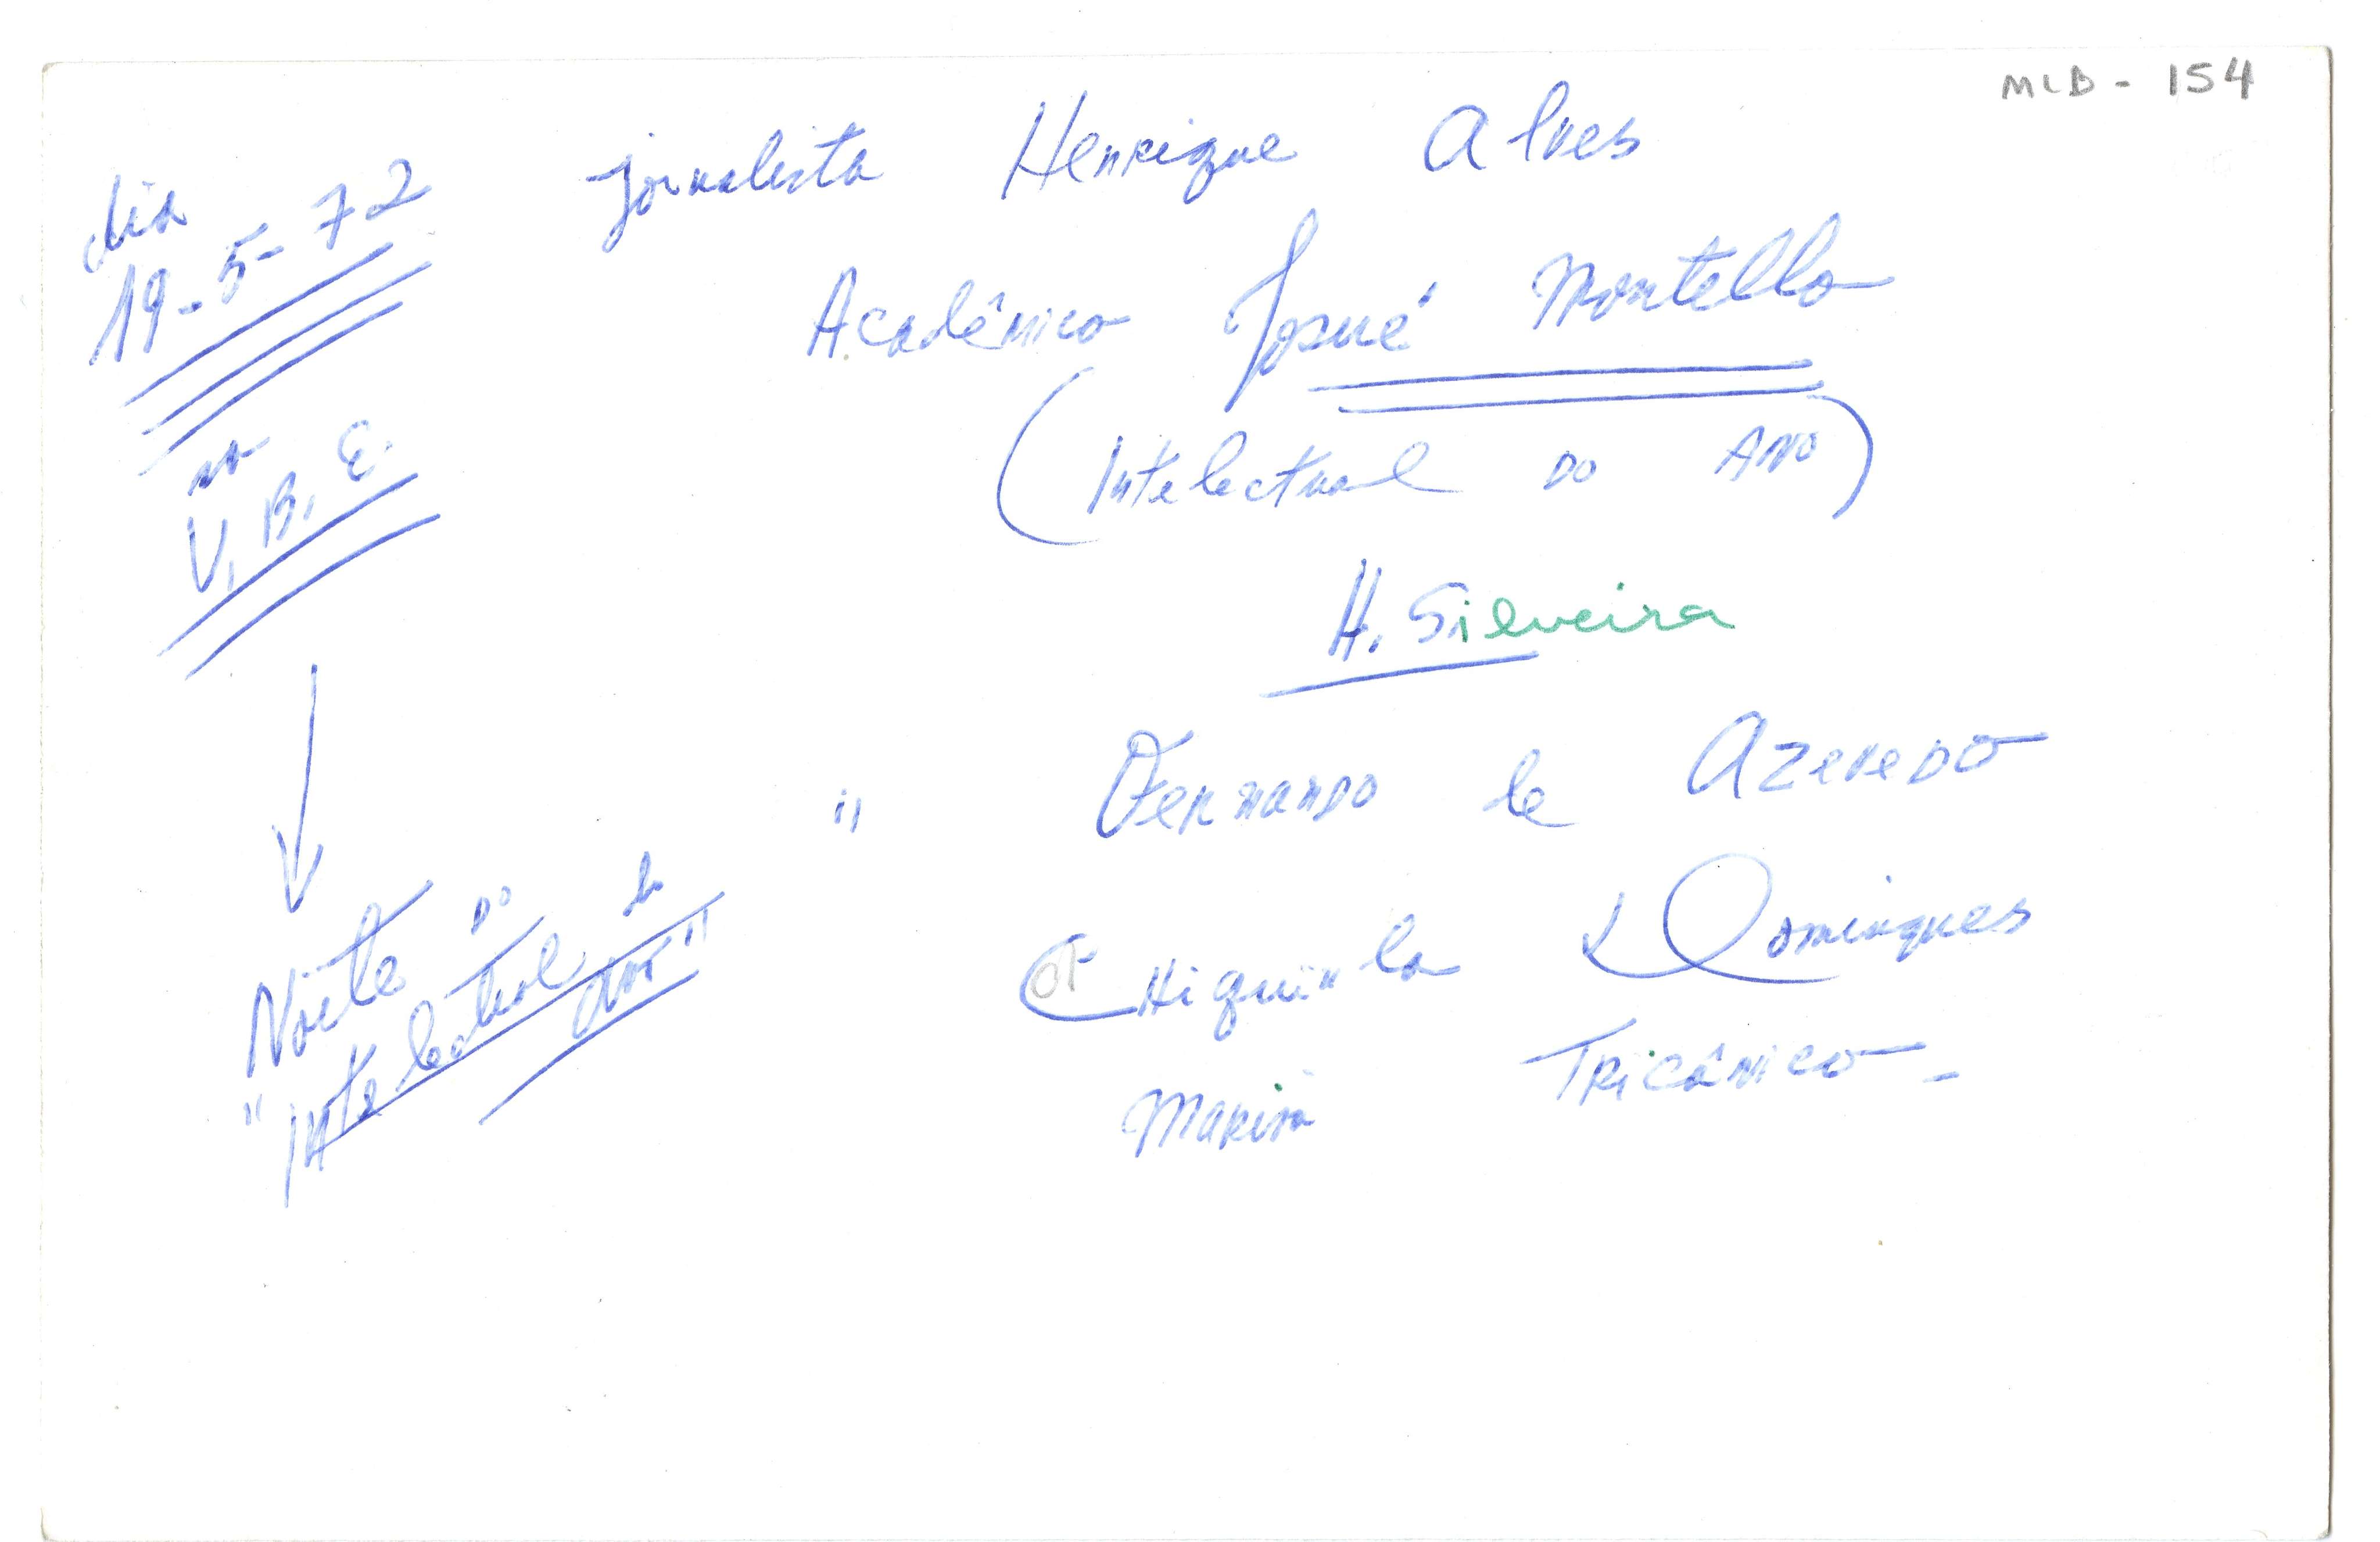 MLD - 154
dia
19-5-72
na
U. B. E.
Noite do
"intelectual do
ano"
jornalista Henrique Alves
Acadêmico Josué Montello
(Intelectual do Ano)
H. Silveira
" Fernando de Azevedo
Chiquinha Domingues
Maria Tricânico -